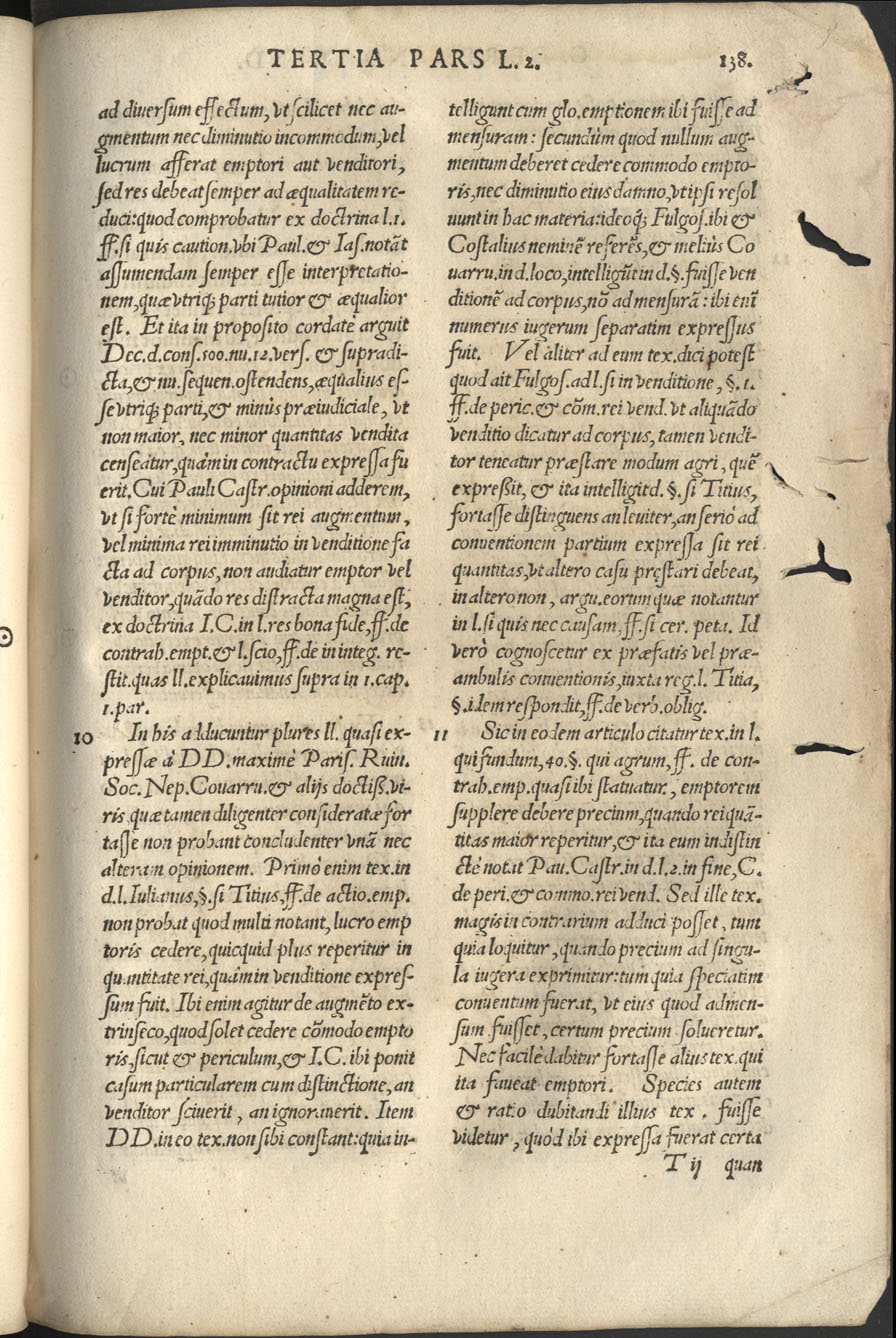 TERTIA PARS L. 2. 138.
ad diversum effectum, vt scilicet nec au-
gmentum nec diminutio incommodum, vel
lucrum afferat emptori aut venditori,
sed res debeat semper ad æqualitatem re-
duci: quod comprobatur ex doctrina l.1.
ff. si quis caution. vbi Paul. & Ias. notāt
assumendam semper esse interpretatio-
nem, quæ vtriq; parti tutior & æqualior
est. Et ita in proposito cordatè arguit
Dec. d. cons. 500. nu. 12. vers. & supradi-
cta, & nu. sequen. ostendens, æqualius es-
se vtriq; parti, & minùs præiudiciale, vt
non maior, nec minor quantitas vendita
censeatur, quàm in contractu expressa fu
erit. Cui Pauli Castr. opinioni adderem,
vt si fortè minimum sit rei augmentum,
vel minima rei imminutio in venditione fa
cta ad corpus, non audiatur emptor vel
venditor, quādo res distracta magna est,
ex doctrina I.C. in l. res bona fide, ff. de
contrah. empt. & l. scio, ff. de in integ. re-
stit. quas ll. explicauimus supra in 1. cap.
1. par.
10 In his adducuntur plures ll. quasi ex-
pressæ à DD. maximè Paris. Ruin.
Soc. Nep. Couarru. & alijs doctiß. vi-
ris, quæ tamen diligenter consideratæ for
tasse non probant concludenter vnā nec
alteram opinionem. Primò enim tex. in
d. l. Iulianus, §. si Titius, ff. de actio. emp.
non probat quod multi notant, lucro emp
toris cedere, quicquid plus reperitur in
quantitate rei, quàm in venditione expres-
sum fuit. Ibi enim agitur de augmēto ex-
trinseco, quod solet cedere cōmodo empto
ris, sicut & periculum, & I.C. ibi ponit
casum particularem cum distinctione, an
venditor sciuerit, an ignorauerit. Item
DD. in eo tex. non sibi constant: quia in-
telligunt cum glo. emptionem ibi fuisse ad
mensuram: secundùm quod nullum aug-
mentum deberet cedere commodo empto-
ris, nec diminutio eius damno, vt ipsi resol
uunt in hac materia: ideoq; Fulgos. ibi &
Costalius neminē referēs, & meliùs Co
uarru. in d. loco, intelligūt in d. §. fuisse ven
ditionē ad corpus, nō ad mensurā: ibi enī
numerus iugerum separatim expressus
fuit. Vel aliter ad eum tex. dici potest
quod ait Fulgos. ad l. si in venditione, §. 1.
ff. de peric. & cōm. rei vend. vt aliquādo
venditio dicatur ad corpus, tamen vendi-
tor teneatur præstare modum agri, quē
expreßit, & ita intelligit d. §. si Titius,
fortasse distinguens an leuiter, an seriò ad
conuentionem partium expressa sit rei
quantitas, vt altero casu pręstari debeat,
in altero non, argu. eorum quæ notantur
in l. si quis nec causam, ff. si cer. peta. Id
verò cognoscetur ex præfatis vel præ-
ambulis conuentionis, iuxta reg. l. Titia,
§. idem respondit, ff. de verb. oblig.
11 Sic in eodem articulo citatur tex. in l.
qui fundum, 40. §. qui agrum, ff. de con-
trah. emp. quasi ibi statuatur, emptorem
supplere debere precium, quando rei quā-
titas maior reperitur, & ita eum indistin
ctè notat Pau. Castr. in d. l. 2. in fine, C.
de peri. & commo. rei vend. Sed ille tex.
magis in contrarium adduci posset, tum
quia loquitur, quando precium ad singu-
la iugera exprimitur: tum quia speciatim
conuentum fuerat, vt eius quod admen-
sum fuisset, certum precium solueretur.
Nec facilè dabitur fortasse alius tex. qui
ita faueat emptori. Species autem
& ratio dubitandi illius tex. fuisse
videtur, quòd ibi expressa fuerat certa
T ij quan